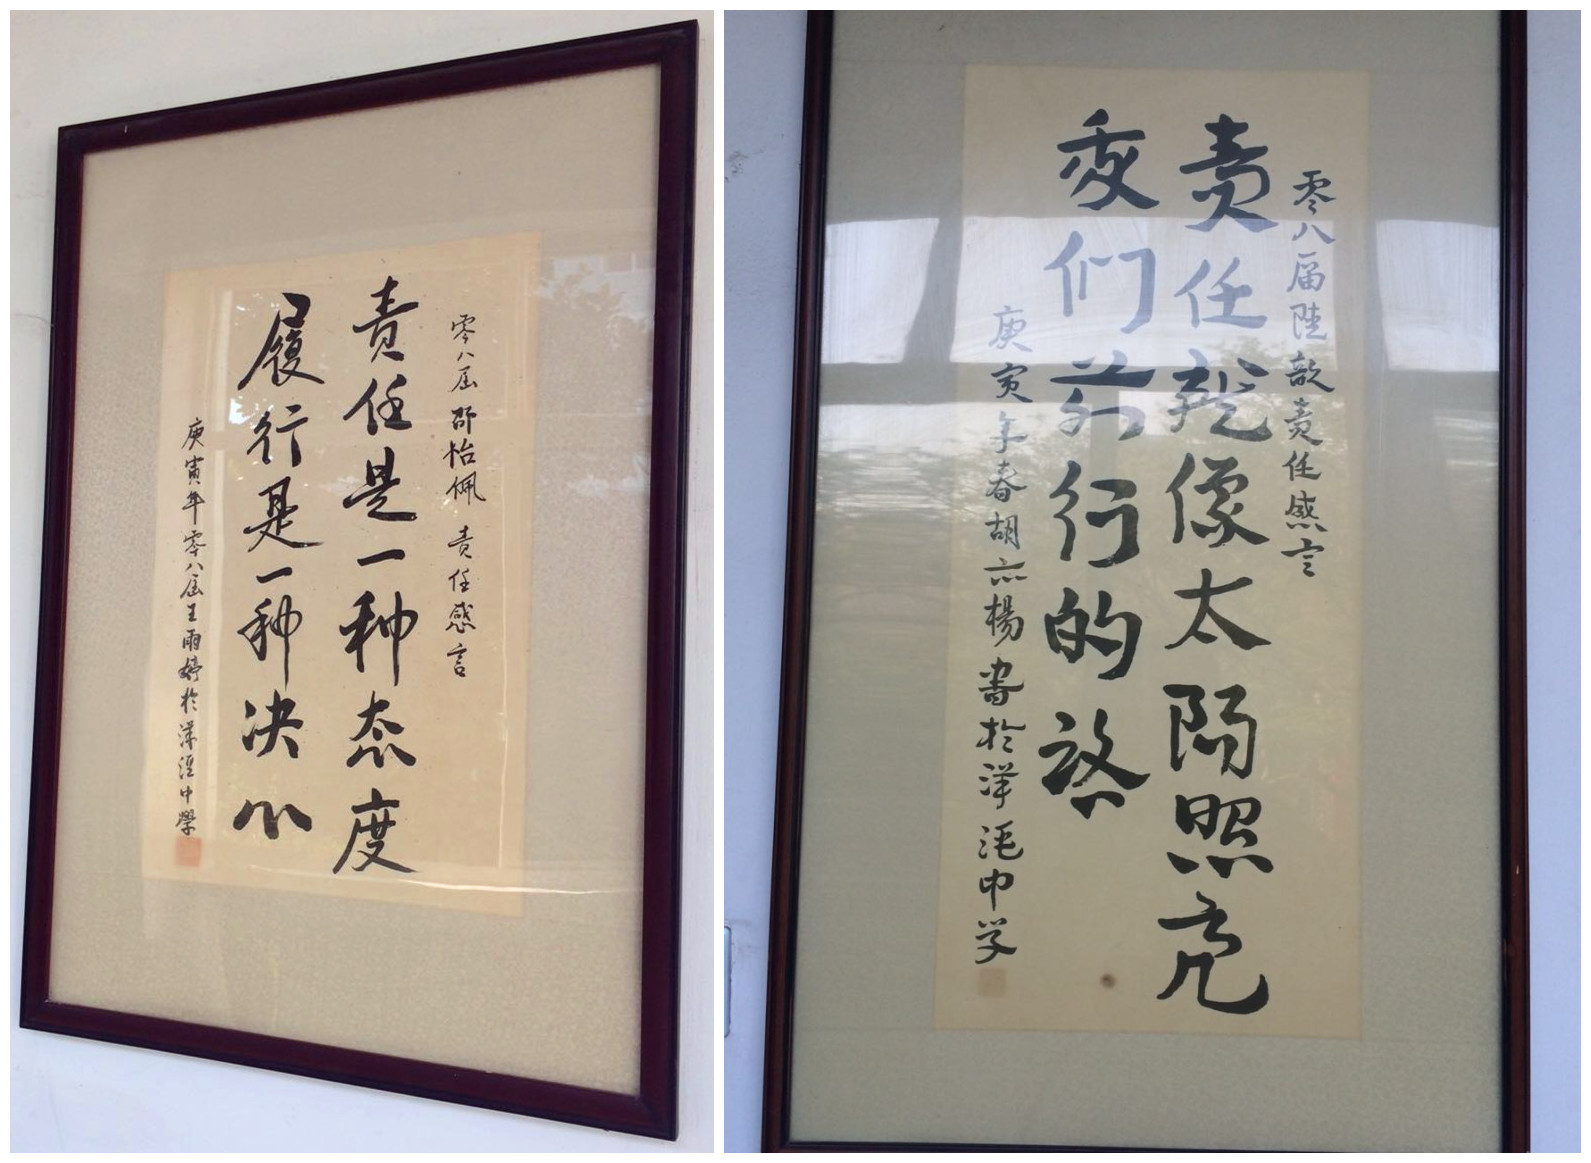 零八届邵怡佩责任感言
责任是一种态度
履行是一种决心
庚寅年零八届王雨婷於洋泾中學
零八届陸歆责任感言
责任就像太陽照亮
我们前行的路
庚寅年春胡亦楊書於洋泾中学